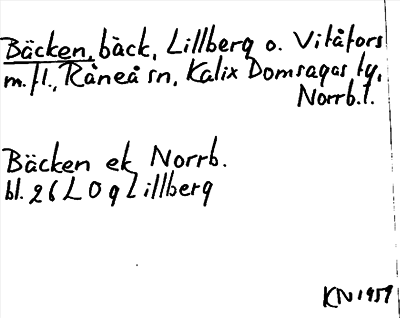 Bäcken, bäck, Lillberg o. Vitåfors
m.fl., Råneå sn, Kalix Domsagas tg,
Norrb.l.
Bäcken ek Norrb.
bl. 26 L O g Lillberg
KN 1959